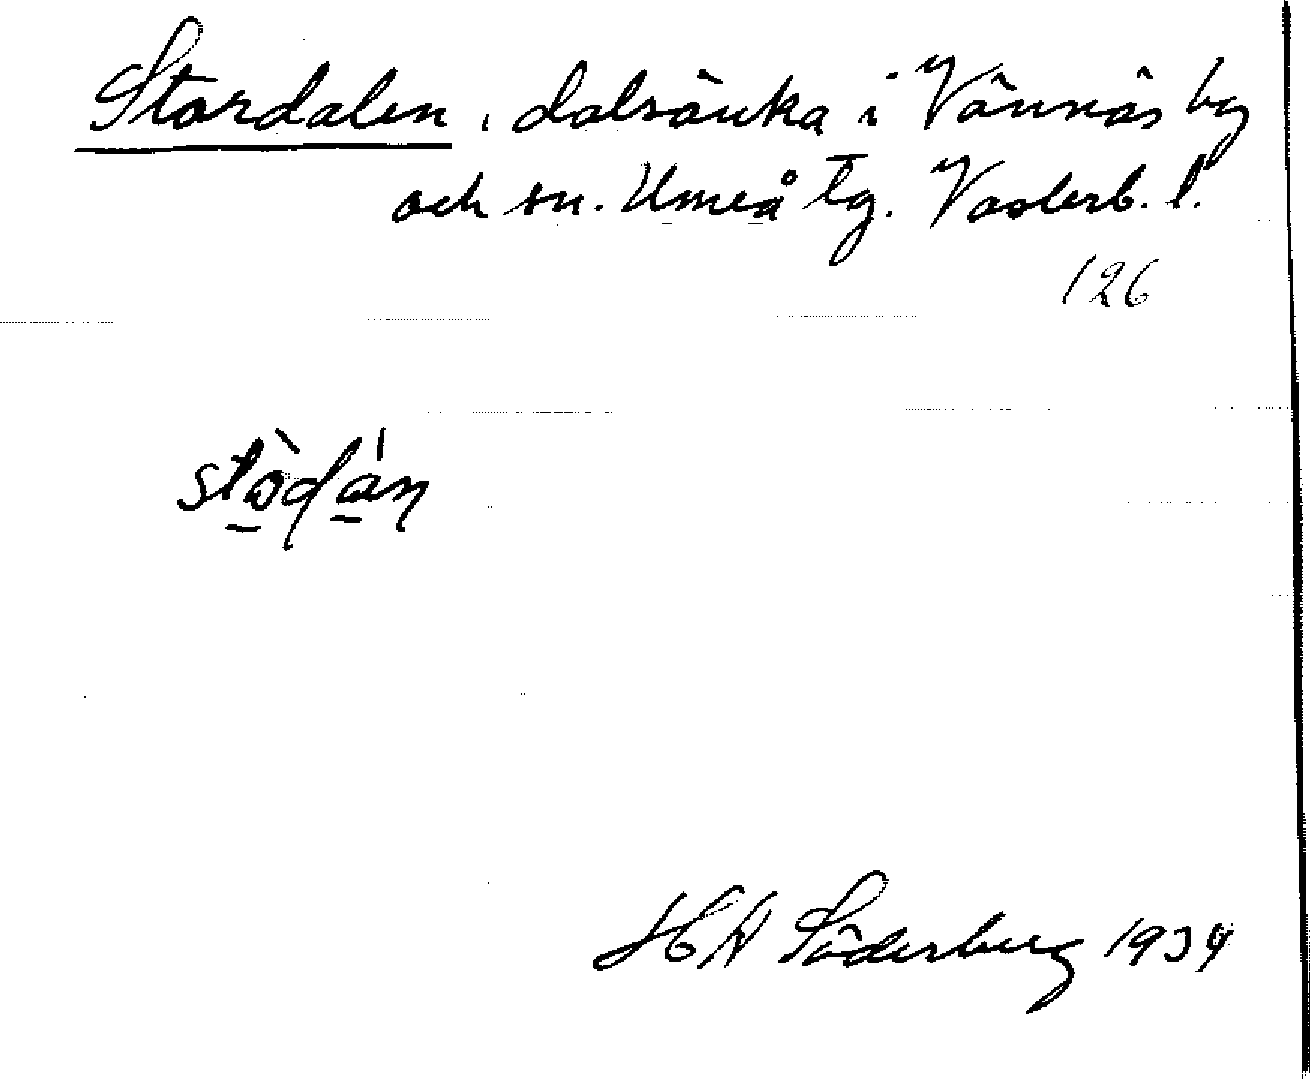 Stordalen, dalsänka i Vännäs by
och sn. Umeå tg. Västerb. l.
126
stòdán
HA Söderberg 1934